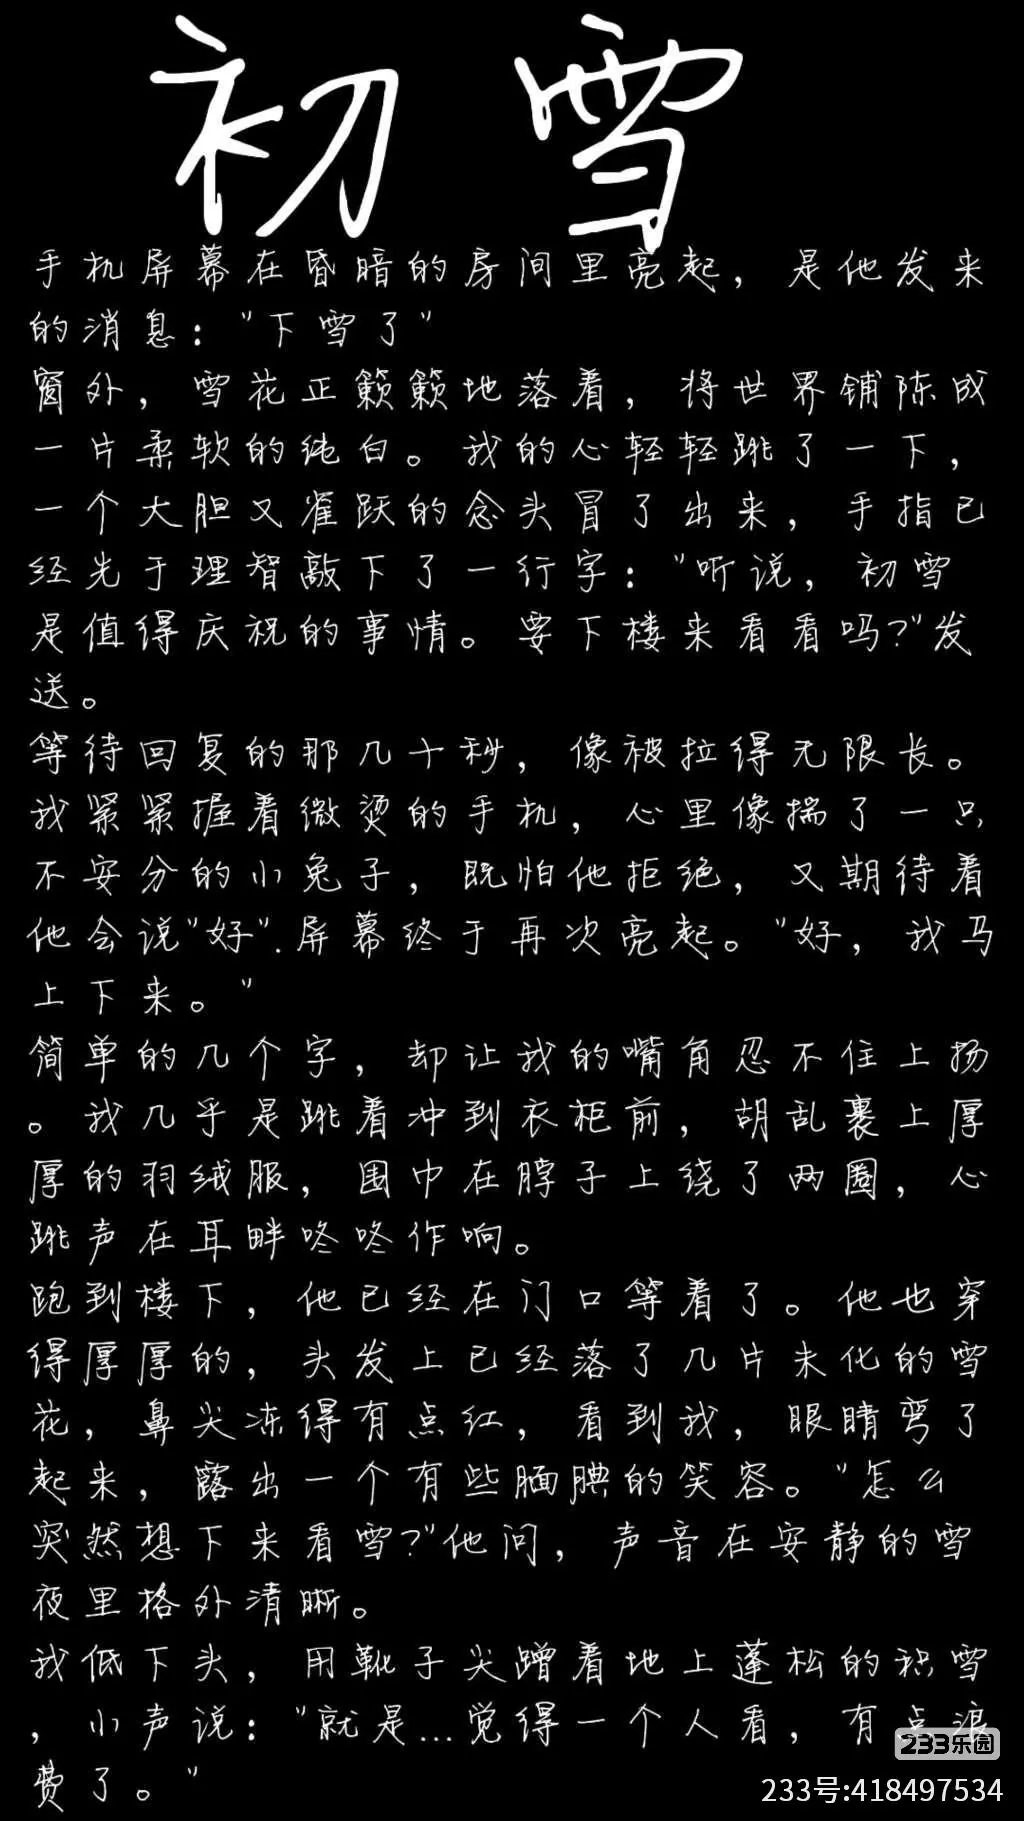 初雪
手机屏幕在昏暗的房间里亮起，是他发来
的消息："下雪了"
窗外，雪花正簌簌地落着，将世界铺陈成
一片柔软的纯白。我的心轻轻跳了一下，
一个大胆又雀跃的念头冒了出来，手指已
经先于理智敲下了一行字："听说，初雪
是值得庆祝的事情。要下楼来看看吗?"发
送。
等待回复的那几十秒，像被拉得无限长。
我紧紧握着微烫的手机，心里像揣了一只
不安分的小兔子，既怕他拒绝，又期待着
他会说"好".屏幕终于再次亮起。"好，我马
上下来。"
简单的几个字，却让我的嘴角忍不住上扬
。我几乎是跳着冲到衣柜前，胡乱裹上厚
厚的羽绒服，围巾在脖子上绕了两圈，心
跳声在耳畔咚咚作响。
跑到楼下，他已经在门口等着了。他也穿
得厚厚的，头发上已经落了几片未化的雪
花，鼻尖冻得有点红，看到我，眼睛弯了
起来，露出一个有些腼腆的笑容。"怎么
突然想下来看雪?"他问，声音在安静的雪
夜里格外清晰。
我低下头，用靴子尖蹭着地上蓬松的积雪
，小声说："就是...觉得一个人看，有点浪
费了。"
233乐园
233号:418497534